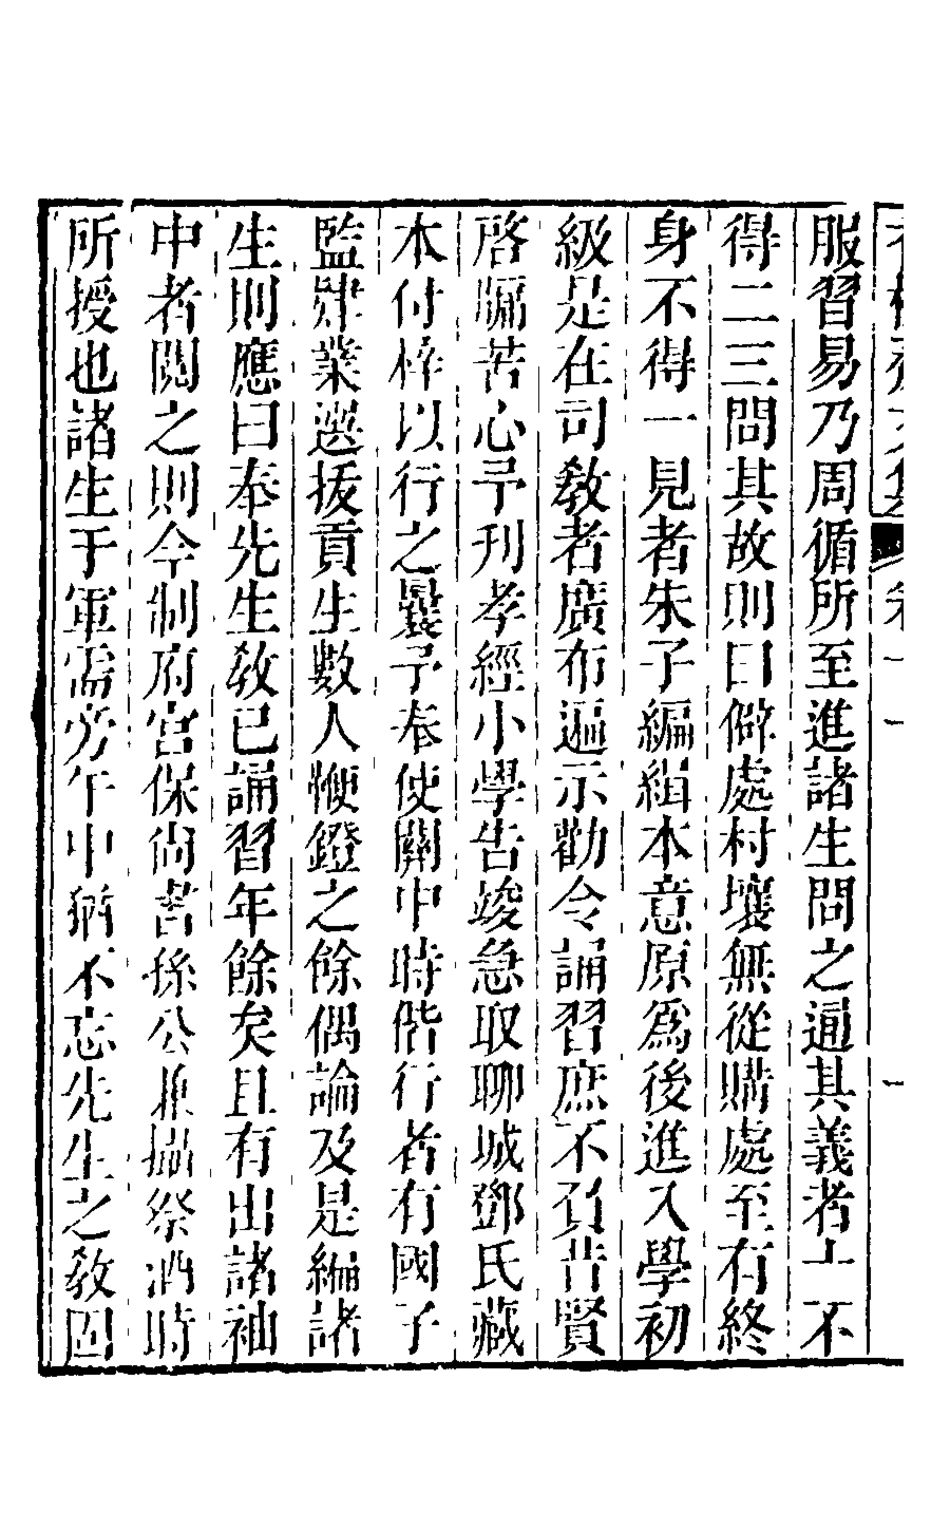 服習易乃周循所至進諸生問之通其義者十不
得二三問其故則曰僻處村壤無從購處至有終
身不得一見者朱子編緝本意原爲後進入學初
級是在司敎者廣布遍示勸令誦習庶不負昔賢
啓牖苦心予刊孝經小學告竣急取聊城鄧氏藏
本付梓以行之曩予奉使關中時偕行者有國子
監肄業選拔貢生數人鞭鐙之餘偶論及是編諸
生則應曰奉先生敎已誦習年餘矣且有出諸袖
中者閱之則今制府宮保尙書孫公兼攝祭酒時
所授也諸生于軍需旁午中猶不忘先生之敎固